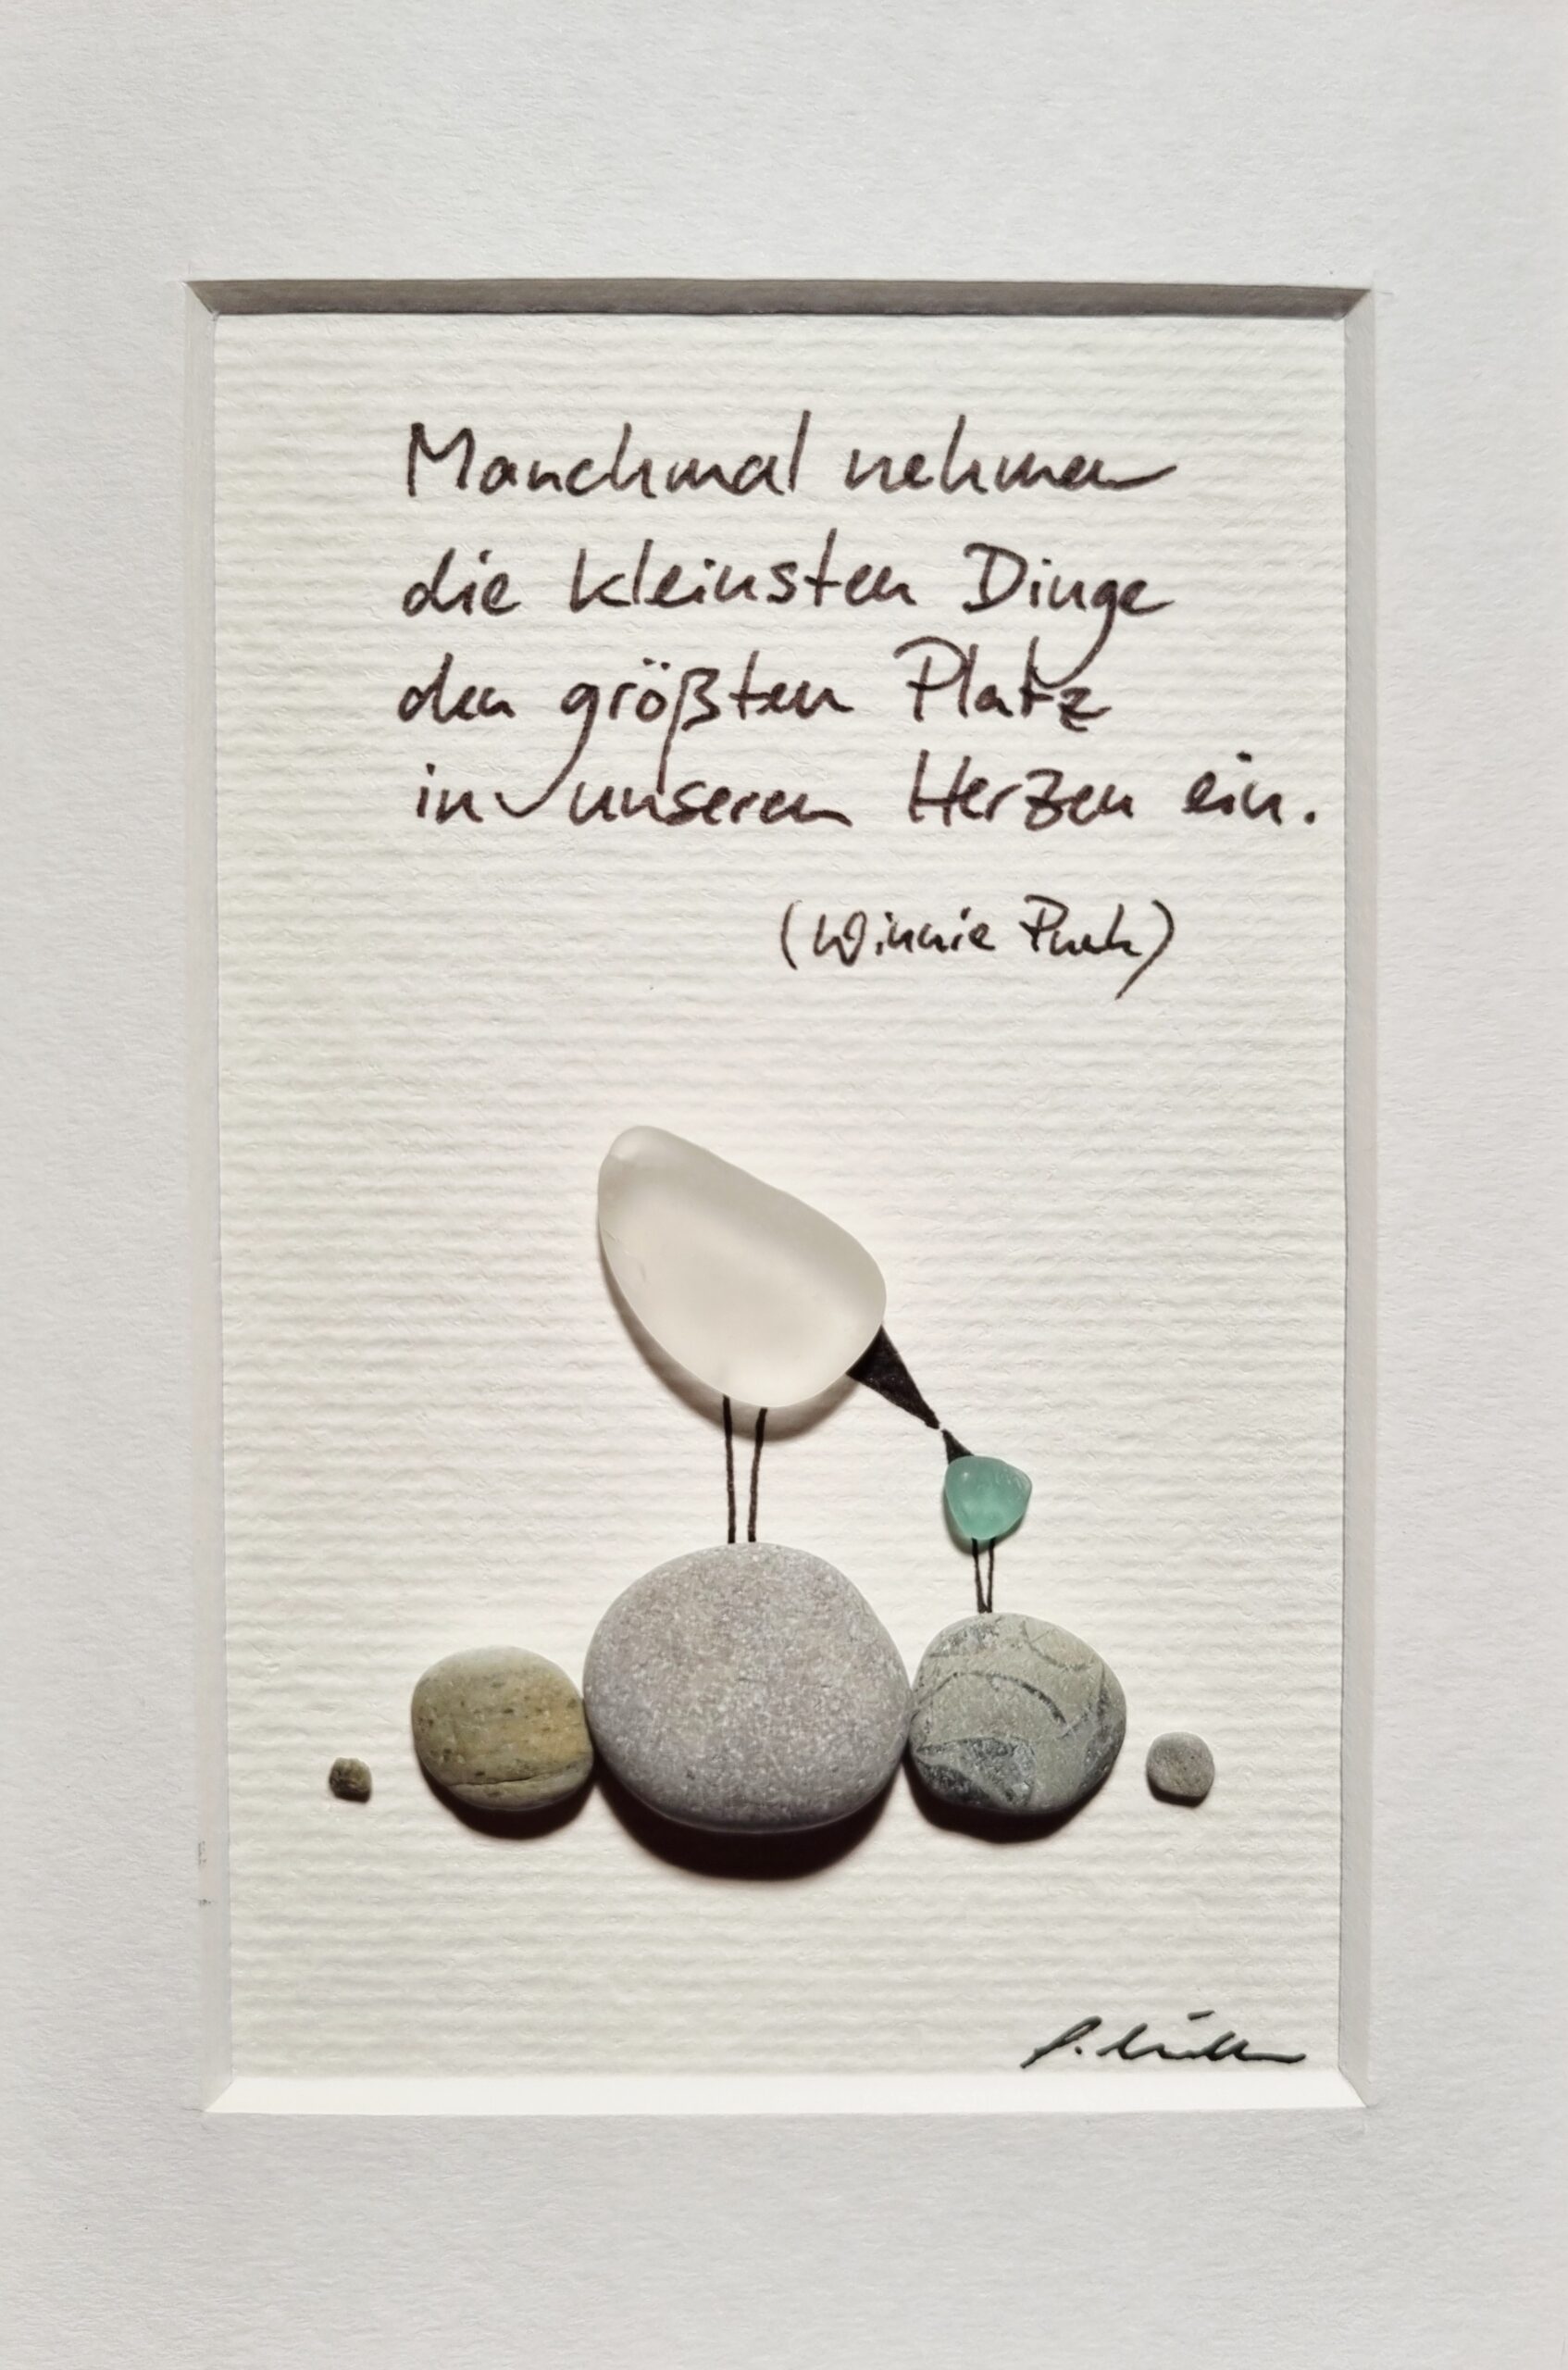 Manchmal nehmen
die kleinsten Dinge
den größten Platz
in unseren Herzen ein.
(Winnie Puuh)